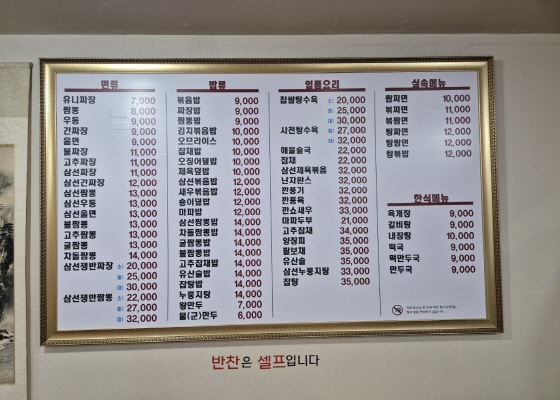 면류
유니짜장 7,000
짬뽕 8,000
우동 9,000
간짜장 9,000
울면 9,000
불짜장 11,000
고추짜장 11,000
삼선짜장 11,000
삼선간짜장 12,000
삼선짬뽕 13,000
삼선우동 13,000
삼선울면 13,000
불짬뽕 13,000
고추짬뽕 13,000
굴짬뽕 13,000
차돌짬뽕 14,000
삼선쟁반짜장 소) 20,000
중) 25,000
대) 30,000
삼선쟁반짬뽕 소) 22,000
중) 27,000
대) 32,000
밥류
볶음밥 9,000
짜장밥 9,000
짬뽕밥 9,000
김치볶음밥 10,000
오므라이스 10,000
잡채밥 10,000
오징어덮밥 10,000
제육덮밥 10,000
삼선볶음밥 12,000
새우볶음밥 12,000
송이덮밥 12,000
마파밥 12,000
삼선짬뽕밥 14,000
차돌짬뽕밥 14,000
굴짬뽕밥 14,000
불짬뽕밥 14,000
고추잡채밥 14,000
유산슬밥 14,000
잡탕밥 14,000
누룽지탕 14,000
왕만두 7,000
물(군)만두 6,000
일품요리
찹쌀탕수육 소) 20,000
중) 25,000
대) 30,000
사천탕수육 중) 27,000
대) 32,000
해물술국 22,000
잡채 22,000
삼선제육볶음 32,000
난자완스 32,000
깐풍기 32,000
깐풍육 32,000
깐쇼새우 33,000
마파두부 21,000
고추잡채 34,000
양장피 35,000
팔보채 35,000
유산슬 35,000
삼선누룽지탕 33,000
잡탕 35,000
실속메뉴
짬짜면 10,000
볶짜면 11,000
볶짬면 11,000
탕짜면 12,000
탕짬면 12,000
탕볶밥 12,000
한식메뉴
육개장 9,000
갈비탕 9,000
내장탕 10,000
떡국 9,000
떡만두국 9,000
만두국 9,000
반찬은 셀프입니다